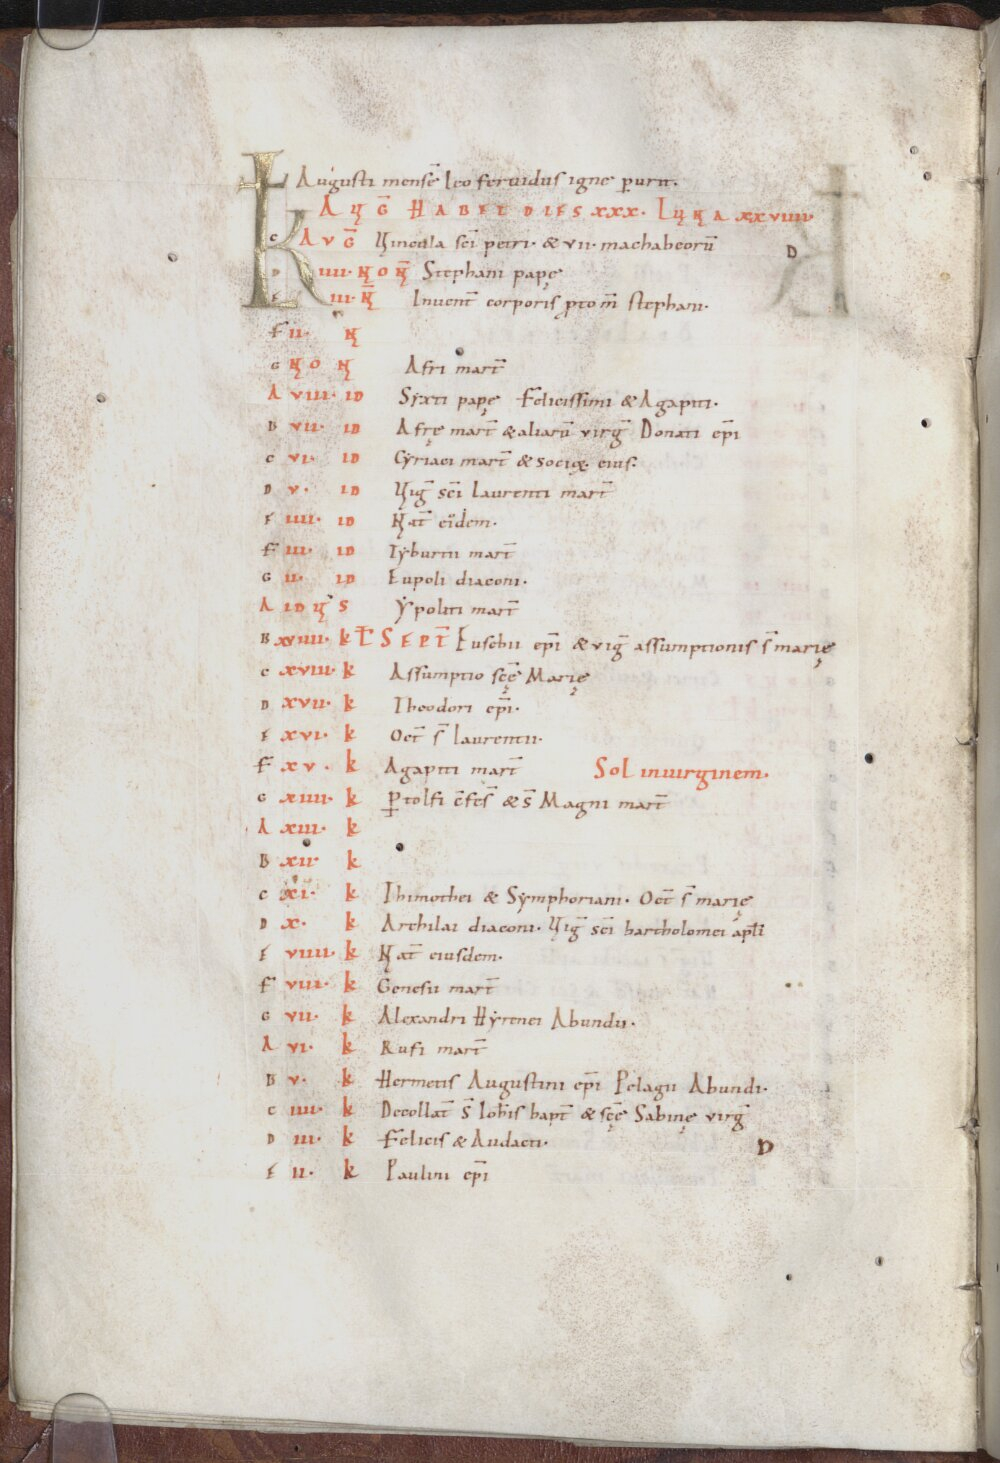 KL Augusti mensẽ leo feruidus igne purit.
AUḠ HABET DIES xxx. LUNA xxviiii
C AVḠ Uincula sc̃i petri. & vii. machabeorũ D
D iiii. NON̄ Stephani papę
E iii. N̄ Inuent̄ corporis ptom̄ stephani.
F ii. N
G NON Afri mart̄
A viii. ID Syxti papę Felicissimi & Agapiti.
B vii. ID Afrę mart̄ & aliarũ virḡ Donati ep̄i
C vi. ID Cyriaci mart̄ & socioꝝ eius.
D v. ID Uiḡ sc̄i laurenti mart̄
E iiii. ID Nat̄ eidem.
F iii. ID Tyburtii mart̄
G ii. ID Eupoli diaconi.
A IDUS Ypoliti mart̄
B xviiii. kL̄ SEPT̄ Eusebii ep̄i & viḡ assumptionis s̄ marię
C xviii. k Assumptio sc̄ę Marię
D xvii. k Theodori ep̄i.
E xvi. k Oct̄ s̄ laurentii.
F xv. k Agapiti mart̄ Sol inuirginem.
G xiiii. k P̱tolfi c̄fes̄ & s̄ Magni mart̄
A xiii. k
B xii k
C xi. k Thimothei & Symphoriani. Oct̄ s̄ marię
D x. k Archilai diaconi. Uiḡ sc̄i bartholomei apl̄i
E viiii. k Nat̄ eiusdem.
F viii. k Genesii mart̄
G vii. k Alexandri Hyrenei Abundii.
A vi. k Rufi mart̄
B v. k Hermetis Augustini ep̄i Pelagii Abundi.
C iiii. k Decollat̄ s̄ Ioh̄is bapt̄ & sc̄ę Sabinę virḡ
D iii. k Felicis & Audacti. D
E ii. k Paulini ep̄i